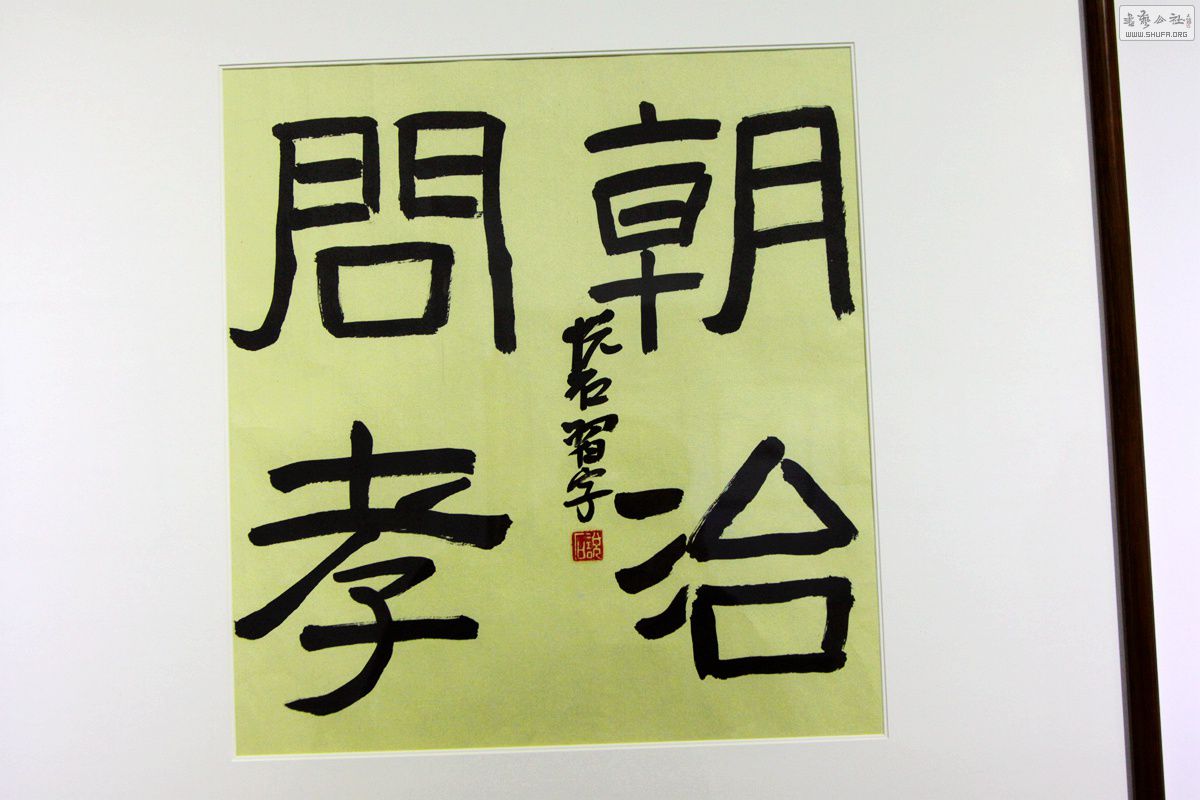 朝治
問孝
石習字
書藝公社
WWW.SHUFA.ORG